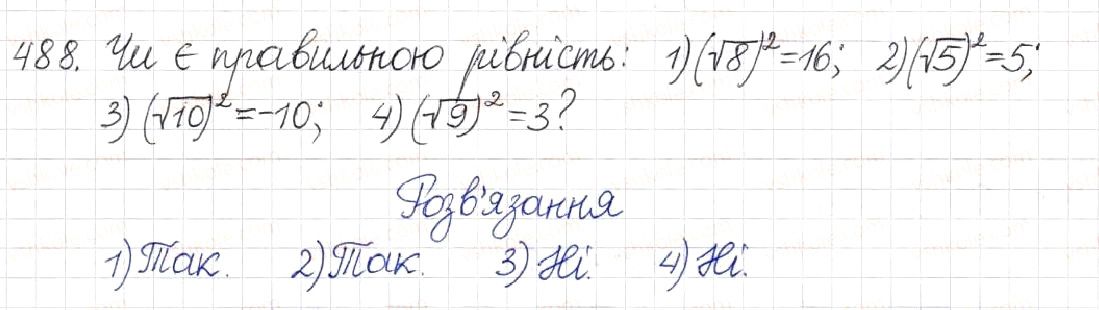 488. Чи є правильною рівність: 1) (√8)² = 16; 2) (√5)² = 5;
3) (√10)² = -10; 4) (√9)² = 3?
Розв'язання
1) Так. 2) Так. 3) Ні. 4) Ні.